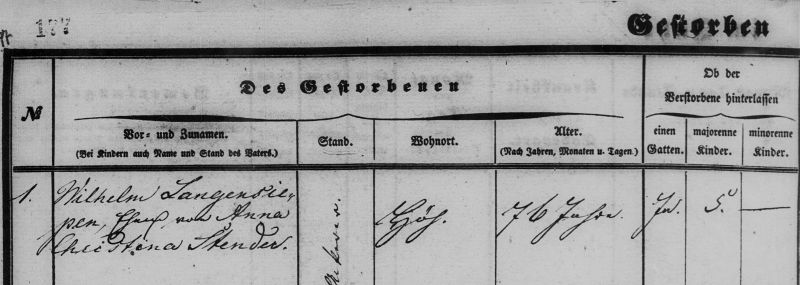 177
Gestorben
№
Des Gestorbenen
Ob der
Verstorbene hinterlassen
Vor- und Zunamen.
(Bei Kindern auch Name und Stand des Vaters.)
Stand.
Wohnort.
Alter.
(Nach Jahren, Monaten u. Tagen.)
einen
Gatten.
majorenne
Kinder.
minorenne
Kinder.
1.
Wilhelm Langensie-
pen, Ehem. von Anna
Christina Stender.
Ackerer.
Höh.
76 Jahre.
Ja.
5.
—